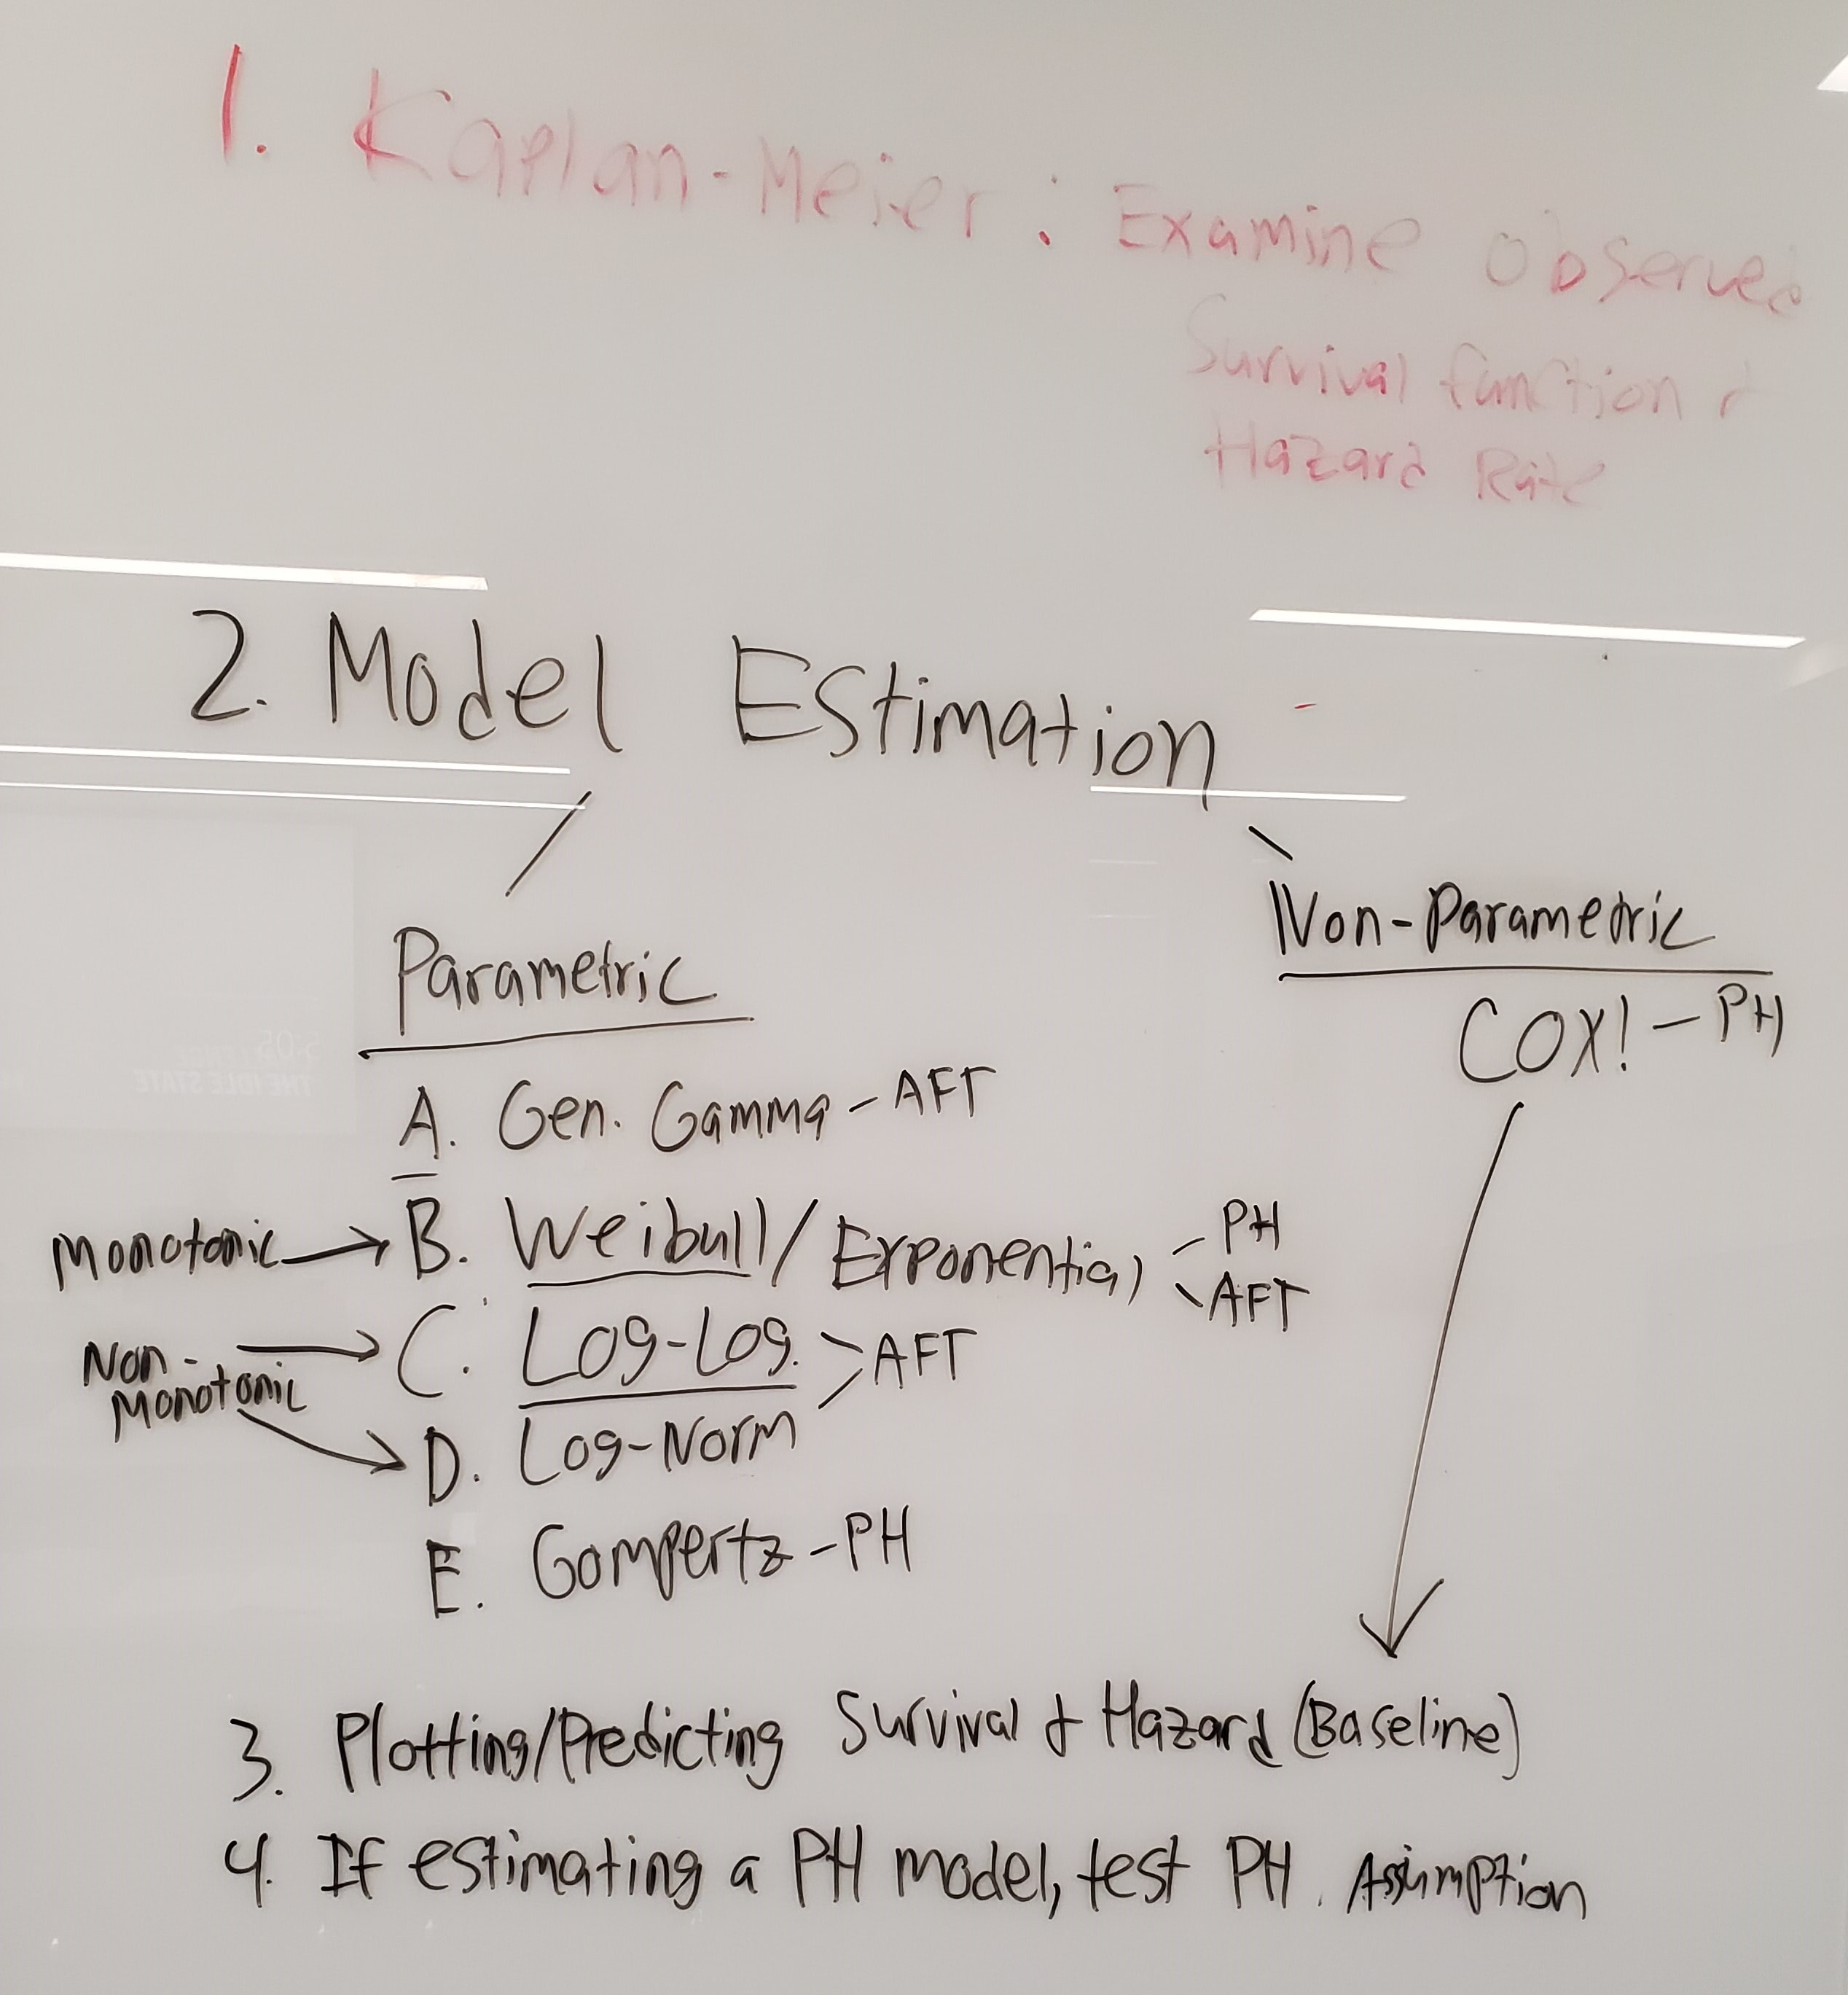 1. Kaplan-Meier: Examine Observed
Survival function &
Hazard Rate
2. Model Estimation
Parametric
Non-Parametric
COX! - PH
A. Gen. Gamma - AFT
Monotonic → B. Weibull/Exponential - PH
- AFT
Non-Monotonic → C. Log-Log. > AFT
→ D. Log-Norm
E. Gompertz - PH
3. Plotting/Predicting Survival & Hazard (Baseline)
4. If estimating a PH model, test PH. Assumption